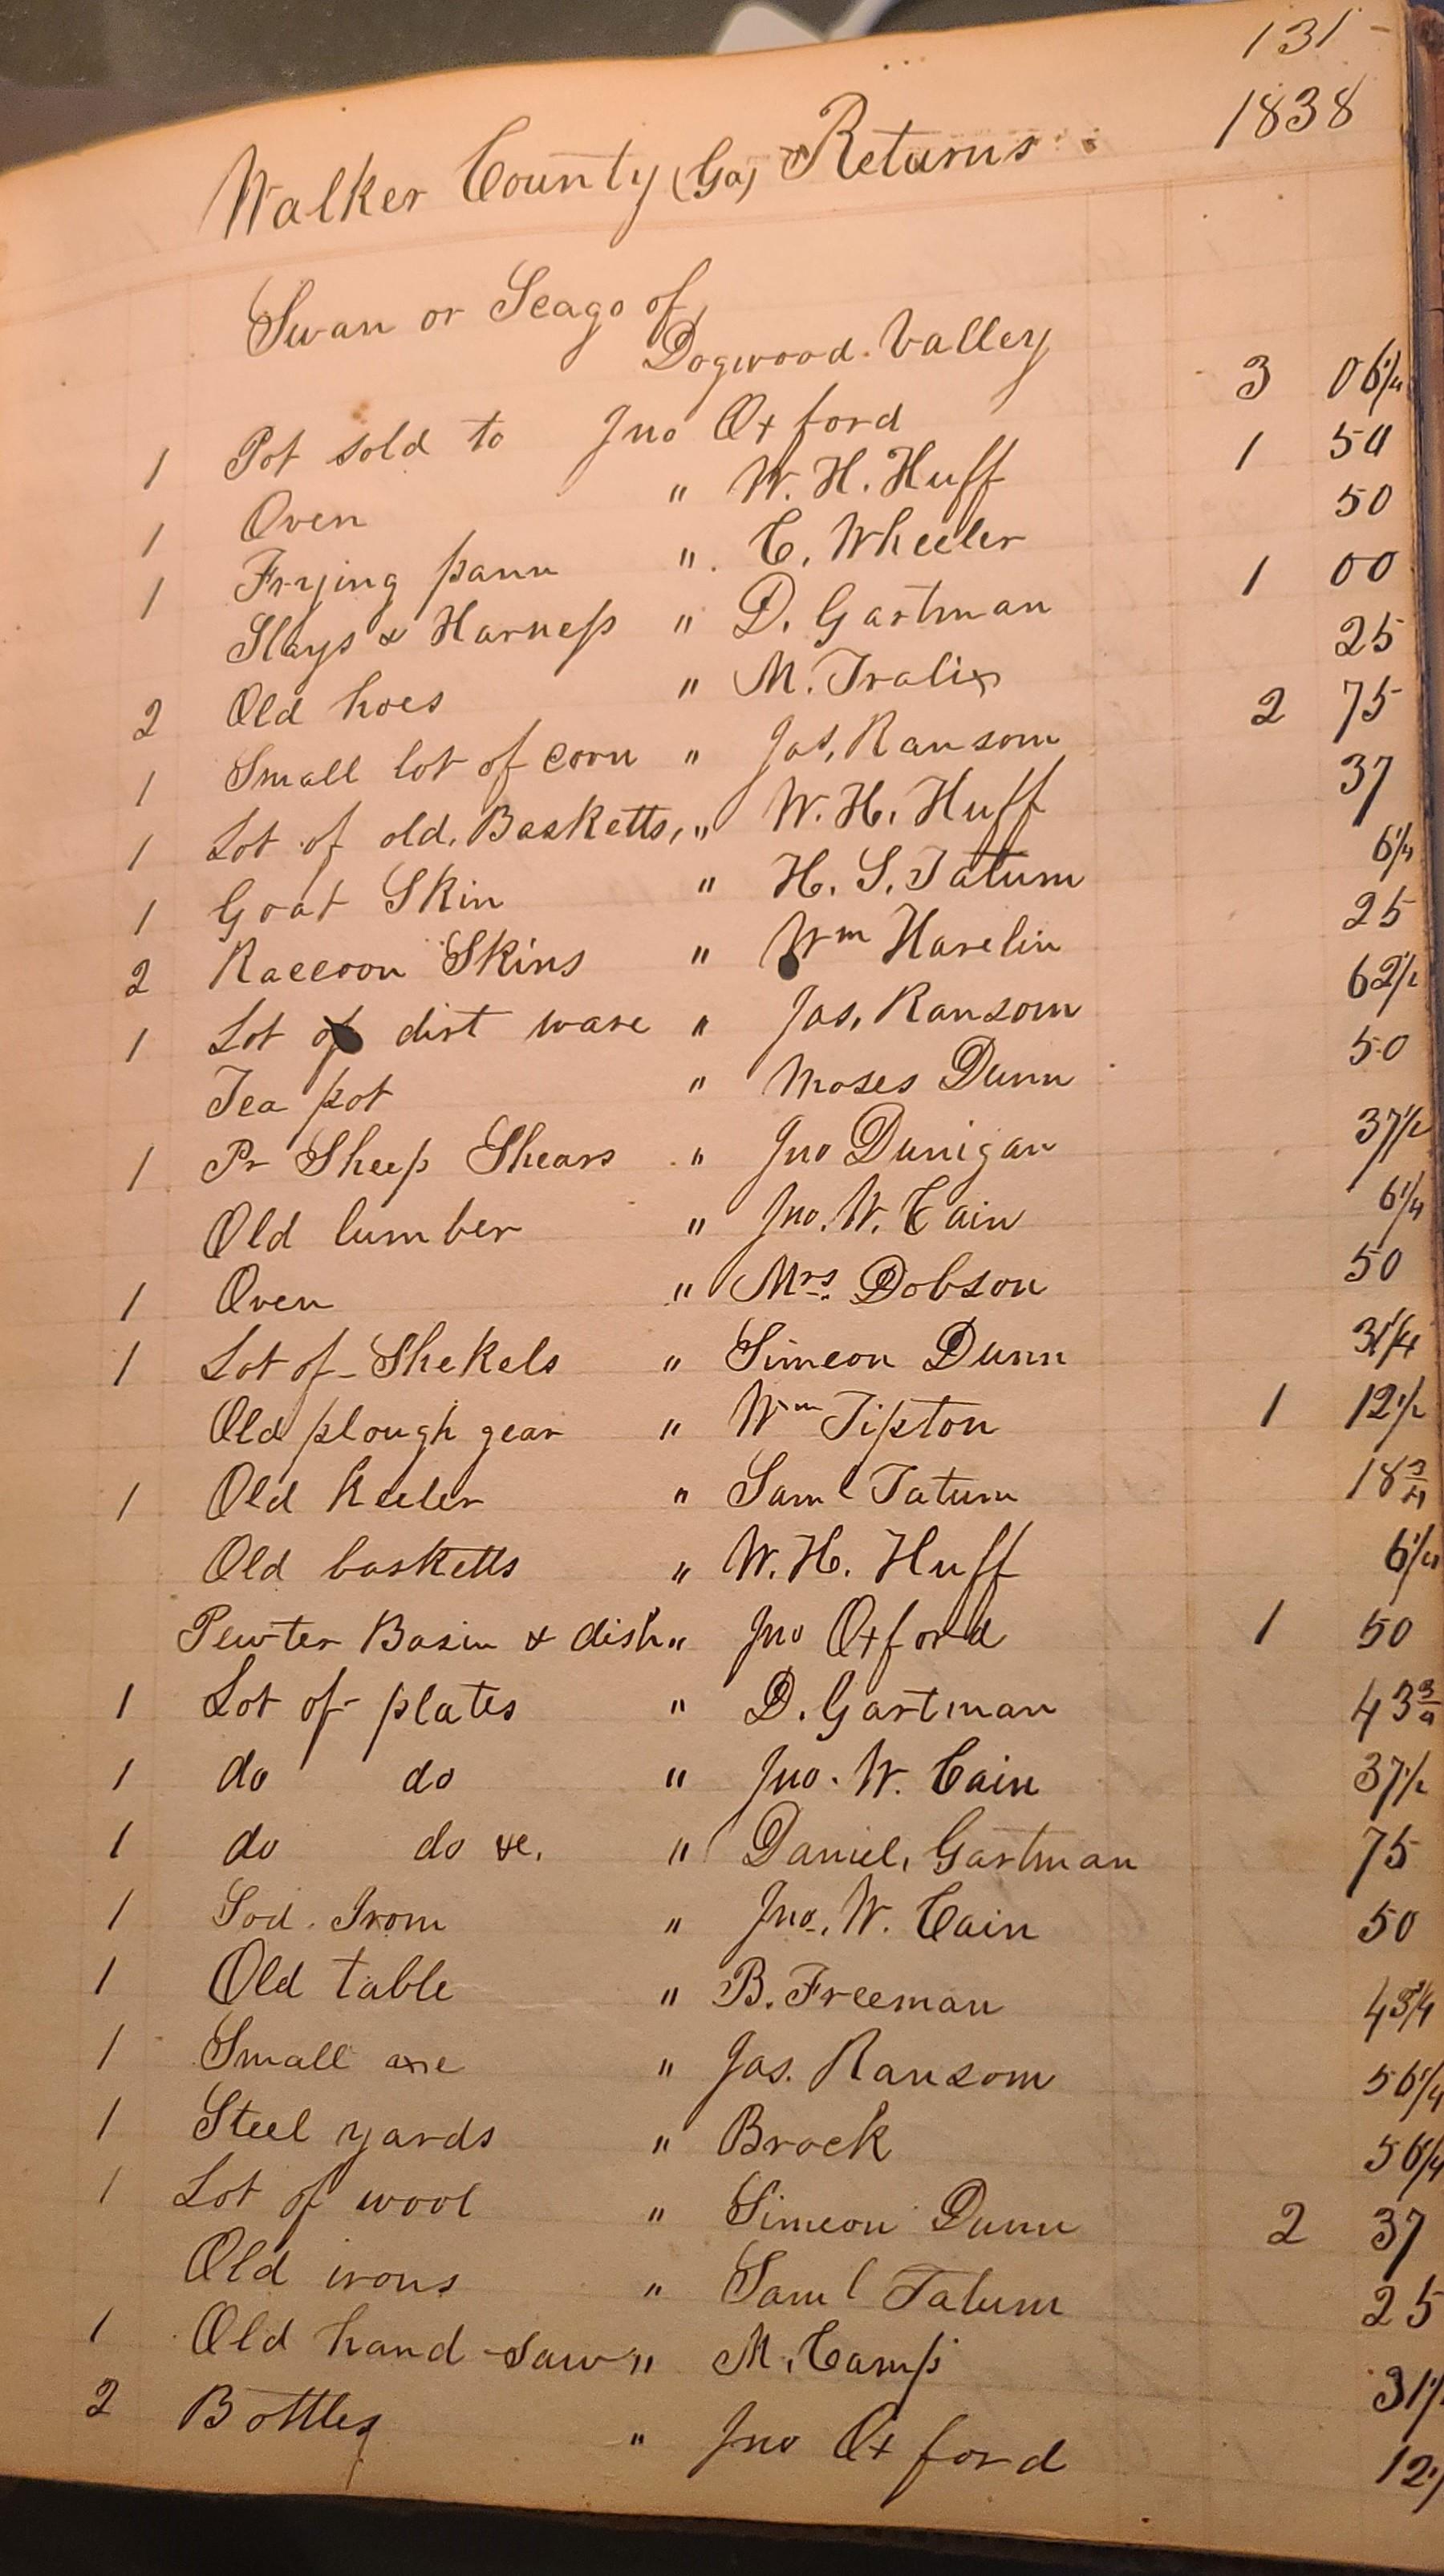 131-
1838
Walker County (Ga) Returns
Swan or Seago of
Dogwood Valley
1 Pot sold to Jno Oxford 3 06 1/4
1 Oven " W. H. Huff 1 50
1 Frying pann " C. Wheeler 50
Slays & Harness " D. Gartman 1 00
2 Old hoes " M. 25
1 Small lot of corn " Jas, Ransom 2 75
1 Lot of old Basketts, " W. H. Huff 37
1 Goat Skin " H. S. Tatum 6 1/4
2 Raccoon Skins " Wm Havelin 25
1 Lot of dirt ware " Jas, Ransom 62 1/2
Tea pot " Moses Dunn 50
1 Pr Sheep Shears " Jno Dunigan 37 1/2
Old lumber " Jno. W. Cain 6 1/4
1 Oven " Mrs. Dobson 50
1 Lot of Shekels " Simeon Dunn 31 1/4
Old plough gear " Wm Tipton 1 12 1/2
1 Old Keeler " Saml Tatum 18 3/4
Old basketts " W. H. Huff 6 1/4
Pewter Basin & dish " Jno Oxford 1 50
1 Lot of plates " D. Gartman 43 3/4
1 do do " Jno. W. Cain 37 1/2
1 do do &c. " Daniel, Gartman 75
1 Sod. Irom " Jno. W. Cain 50
1 Old table " B. Freeman 43 3/4
1 Small axe " Jas. Ransom 56 1/4
1 Steel yards " Brock 56 1/4
1 Lot of wool " Simeon Dunn 2 37
Old irons " Saml Tatum 25
1 Old hand saw " M. Camp 31 1/
2 Bottles " Jno Oxford 12 1/